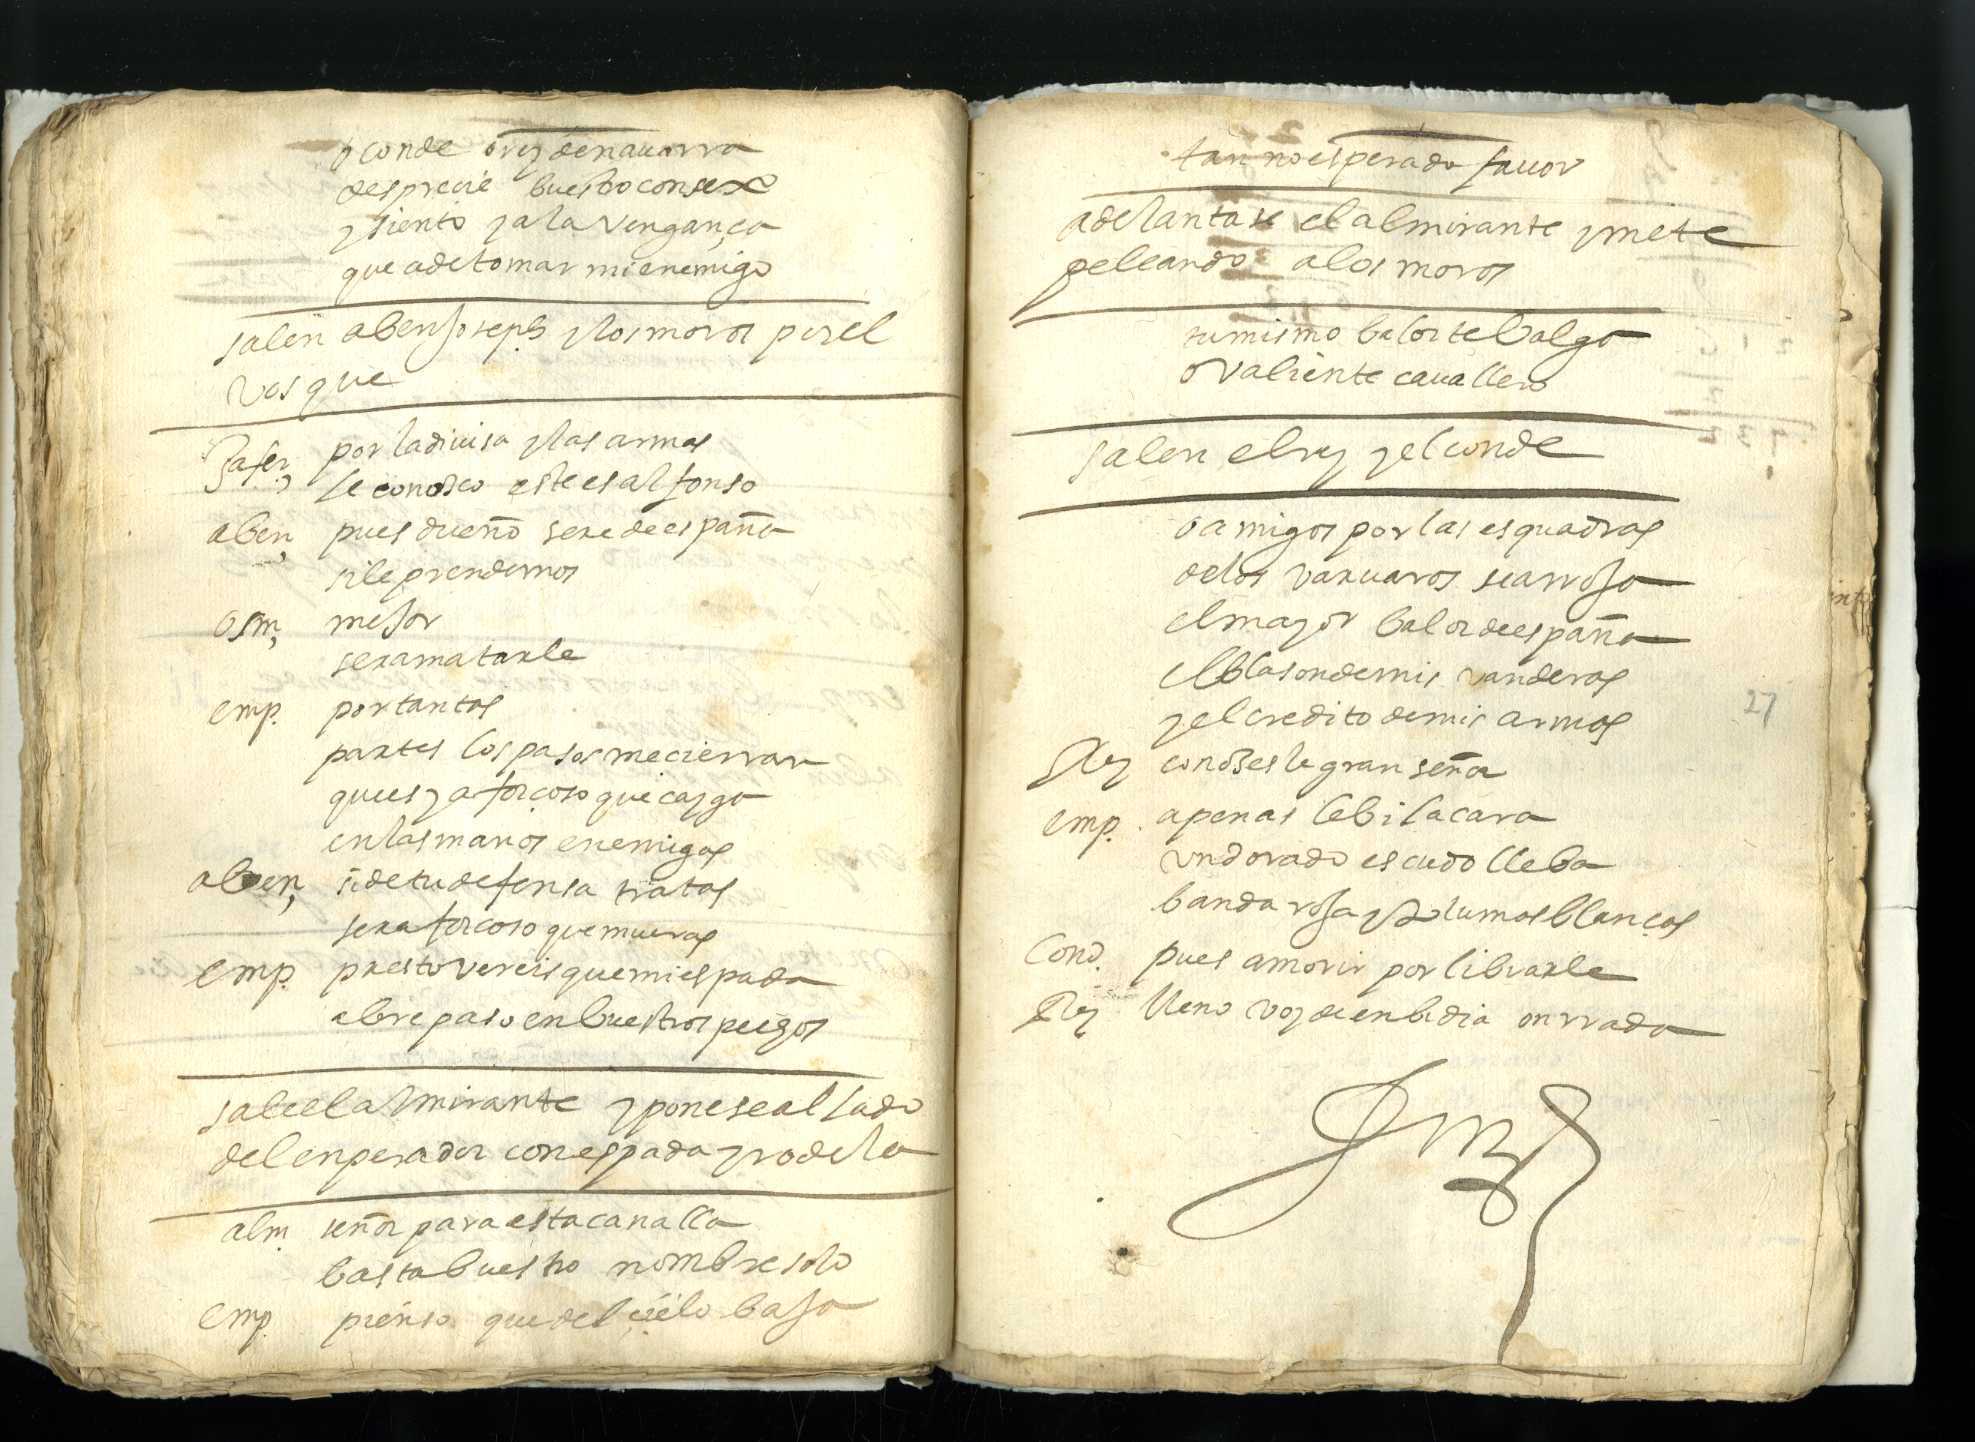 o conde o rey de nauarra
desprecie buestro consexo
y siento ya la vengança
que a de tomar mi enemigo
salen aben Joseph y los moros por el
vosque
Jafer, por la diuisa y las armas
le conosco este es alfonso
aben, pues dueño sere de españa
si le prendemos
osm, meJor
sera matarle
emp. por tantas
partes los pasos me cierran
que es ya forçoso que cayga
en las manos enemigas
aben, si de tu defensa tratas
sera forcoso que mueras
emp. presto vereis que mi espada
abre paso en buestros pechos
sale el almirante y ponese al lado
del enperador con espada y rodela
alm. señor para esta canalla
basta buestro nombre solo
emp. pienso que del cielo baJa
tan no esperado fauor
adelantase el almirante y mete
peleando a los moros
tu mismo balor te balga
o valiente cauallero
salen el rey y el conde
o amigos por las esquadras
de los varuaros se arroJa
el mayor balor de españa
el blason de mis vanderas
y el credito de mis armas
Rey conosesle gran señor
emp. apenas le bi la cara
vn dorado escudo lleba
banda roJa y plumas blancas
Cond. pues a morir por librarle
Rey lleno voy de enbidia onrrada
27